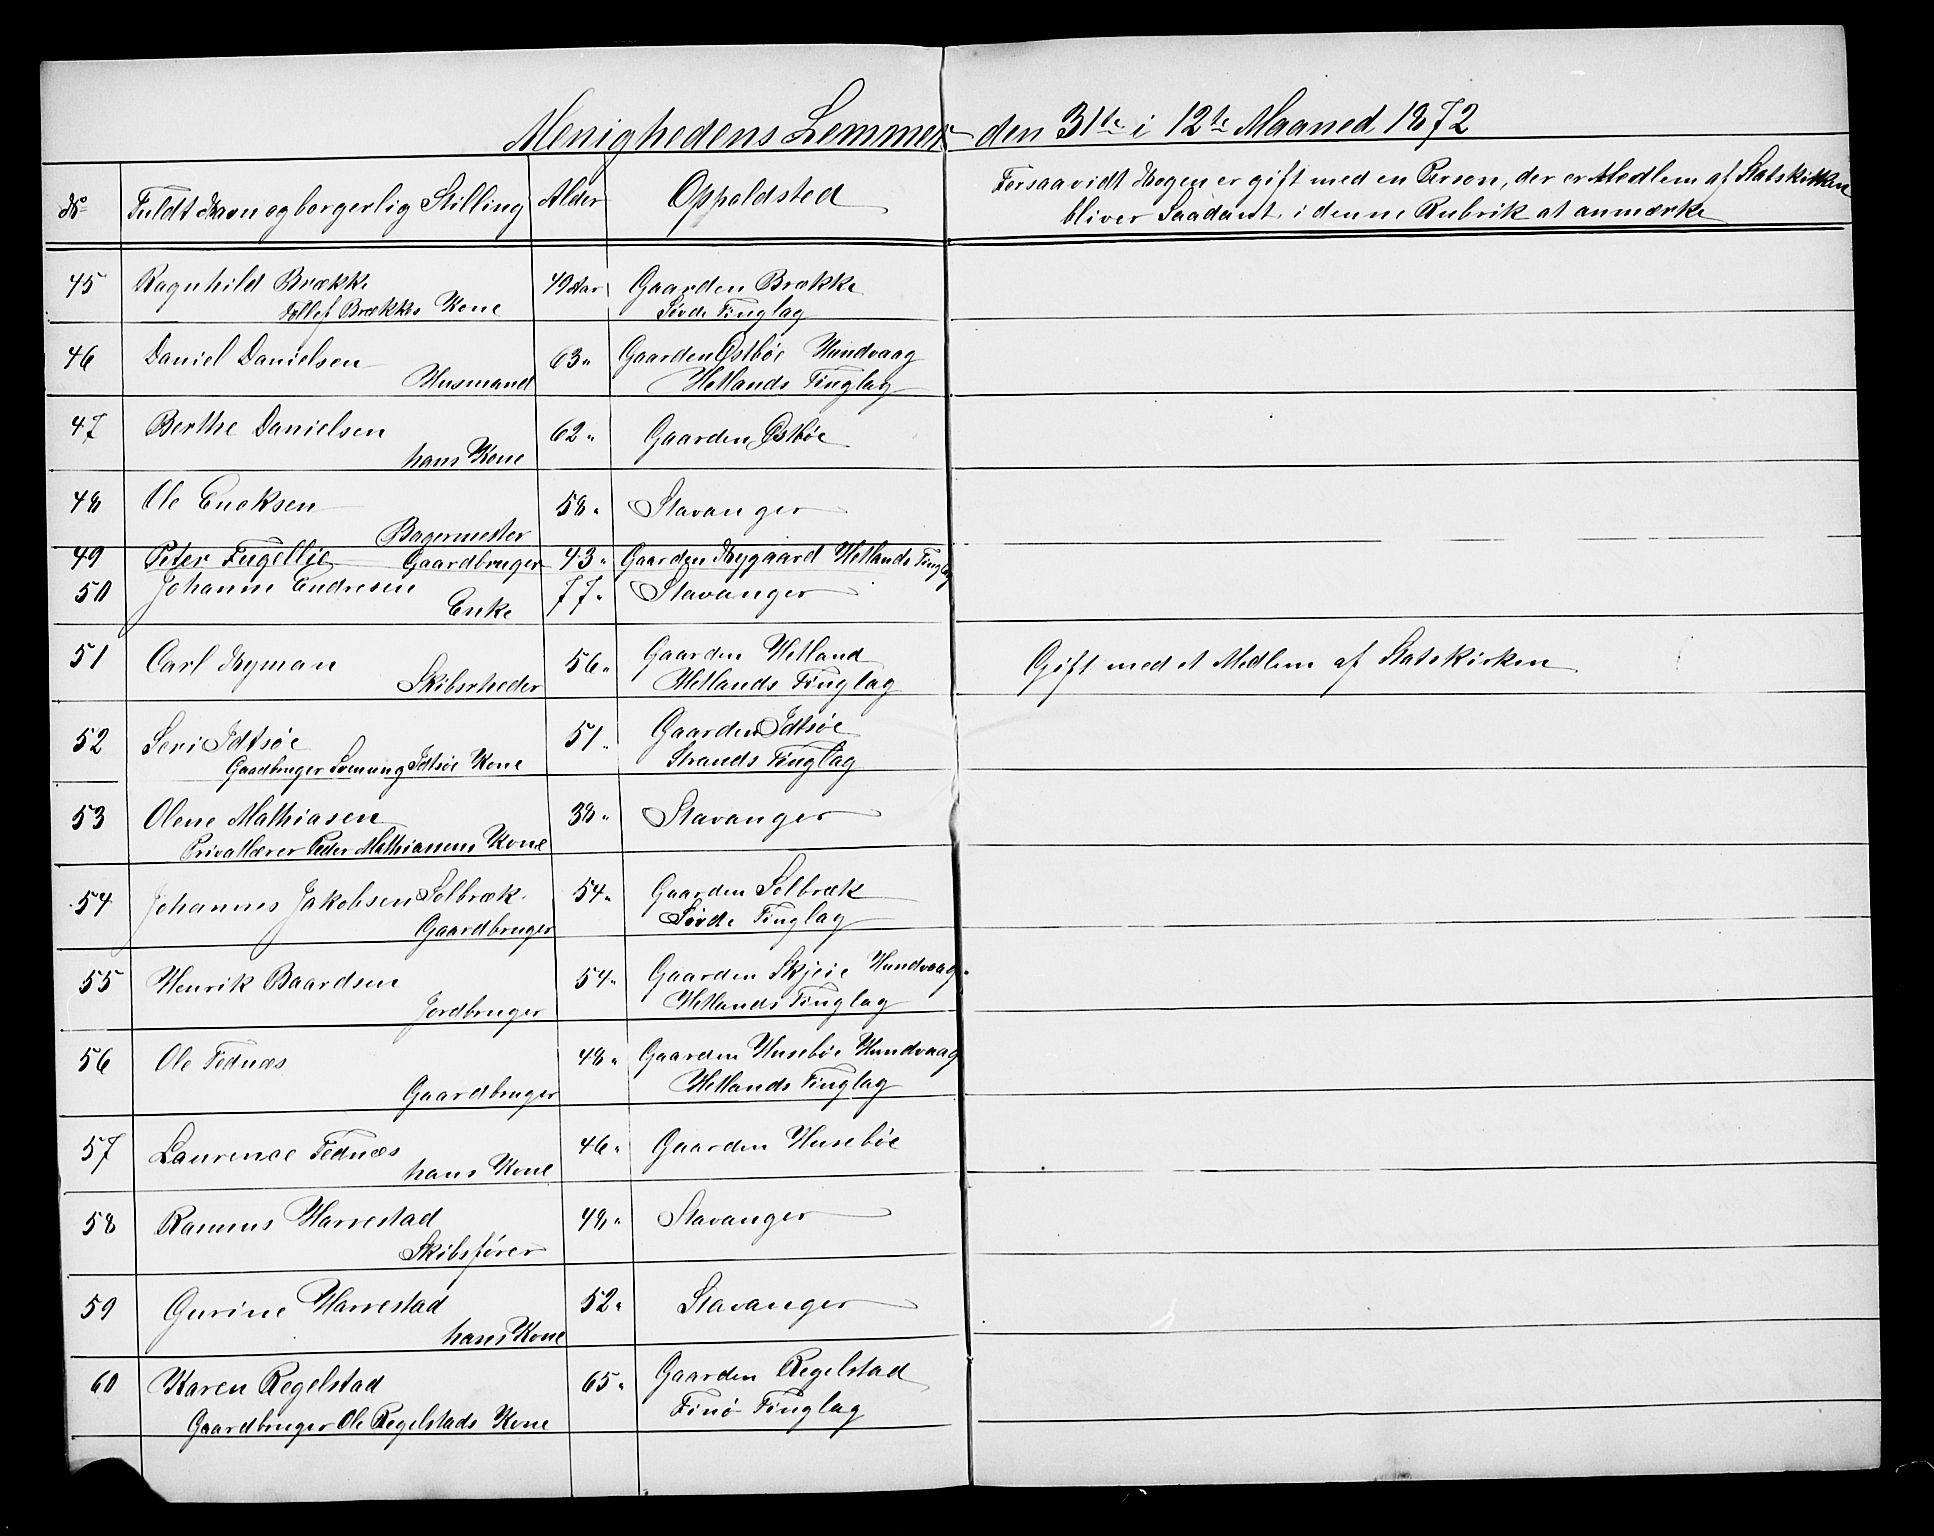 Menighedens Lemmer den 31te i 12te Maaned 1872
No Fuldt Navn og borgerlig Stilling Alder Oppoldsted Forsaavidt Nogen er gift med en Person, der er Medlem af Statskirken
bliver Saadant i denne Rubrik at anmærke
45 Ragnhild Brække 49 Aar Gaarden Brække
Tollef Brækkes Kone Søvde Tinglag
46 Daniel Danielsen 63" Gaarden Østbøe Hundvaag
Husmand Hetlands Tinglag
47 Berthe Danielsen 62" Gaarden Østbøe
hans Kone
48 Ole Enoksen 58" Stavanger
Bagermester
49 Peter Fugellie Gaardbruger 43" Gaarden Nygaard Hetlands Tinglag
50 Johanne Endresen 77" Stavanger
Enke
51 Carl Nyman 56" Gaarden Hetland Gift med et Medlem af Statskirken
Skibsrheder Hetlands Tinglag
52 Seri Idtsøe 51" Gaarden Idtsøe
Gaardbruger Svenung Idtsøe Kone Strands Tinglag
53 Olene Mathiasen 38" Stavanger
Privatlærer Peder Mathiasens Kone
54 Johannes Jakobsen Solbræk 54" Gaarden Solbræk
Gaardbruger Søvde Tinglag
55 Henrik Baardsen 54" Gaarden Skjeie Hundvaag
Jordbruger Hetlands Tinglag
56 Ole Tednæs 48" Gaarden Husebøe Hundvaag
Gaardbruger Hetlands Tinglag
57 Laurence Tednæs 46" Gaarden Husebøe
hans Kone
58 Rasmus Harrestad 48" Stavanger
Skibsfører
59 Gurine Harrestad 52" Stavanger
hans Kone
60 Karen Regelstad 65" Gaarden Regelstad
Gaardbruger Ole Regelstads Kone Finø Tinglag